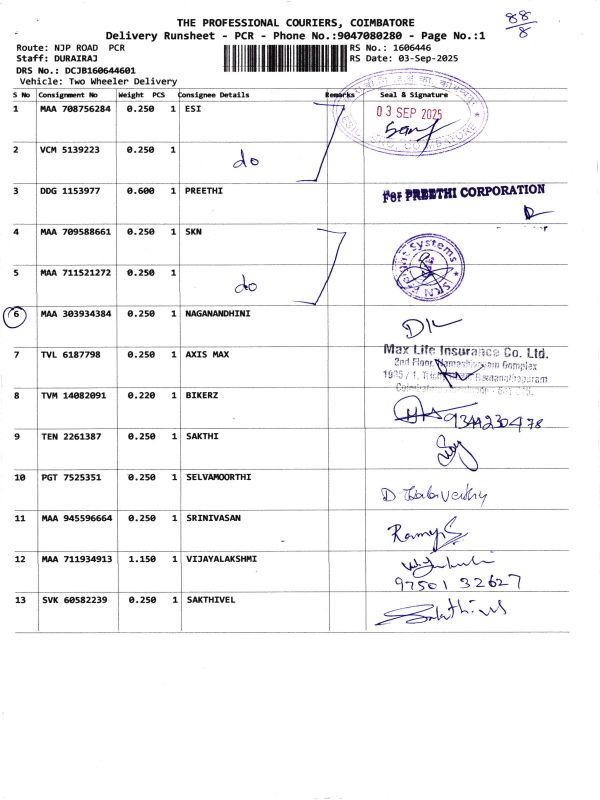 THE PROFESSIONAL COURIERS, COIMBATORE
88/8
Delivery Runsheet - PCR - Phone No.:9047080280 - Page No.:1
Route: NJP ROAD PCR RS No.: 1606446
Staff: DURAIRAJ RS Date: 03-Sep-2025
DRS No.: DCJB160644601
Vehicle: Two Wheeler Delivery
S No Consignment No Weight PCS Consignee Details Remarks Seal & Signature
1 MAA 708756284 0.250 1 ESI
03 SEP 2025
COIMBATORE
2 VCM 5139223 0.250 1 do
3 DDG 1153977 0.600 1 PREETHI For PREETHI CORPORATION
4 MAA 709588661 0.250 1 SKN
Systems
5 MAA 711521272 0.250 1 do
6 MAA 303934384 0.250 1 NAGANANDHINI
7 TVL 6187798 0.250 1 AXIS MAX Max Life Insurance Co. Ltd.
2nd Floor, Namashivayam Complex
8 TVM 14082091 0.220 1 BIKERZ 9344230478
9 TEN 2261387 0.250 1 SAKTHI
10 PGT 7525351 0.250 1 SELVAMOORTHI
11 MAA 945596664 0.250 1 SRINIVASAN
12 MAA 711934913 1.150 1 VIJAYALAKSHMI
97501 32627
13 SVK 60582239 0.250 1 SAKTHIVEL